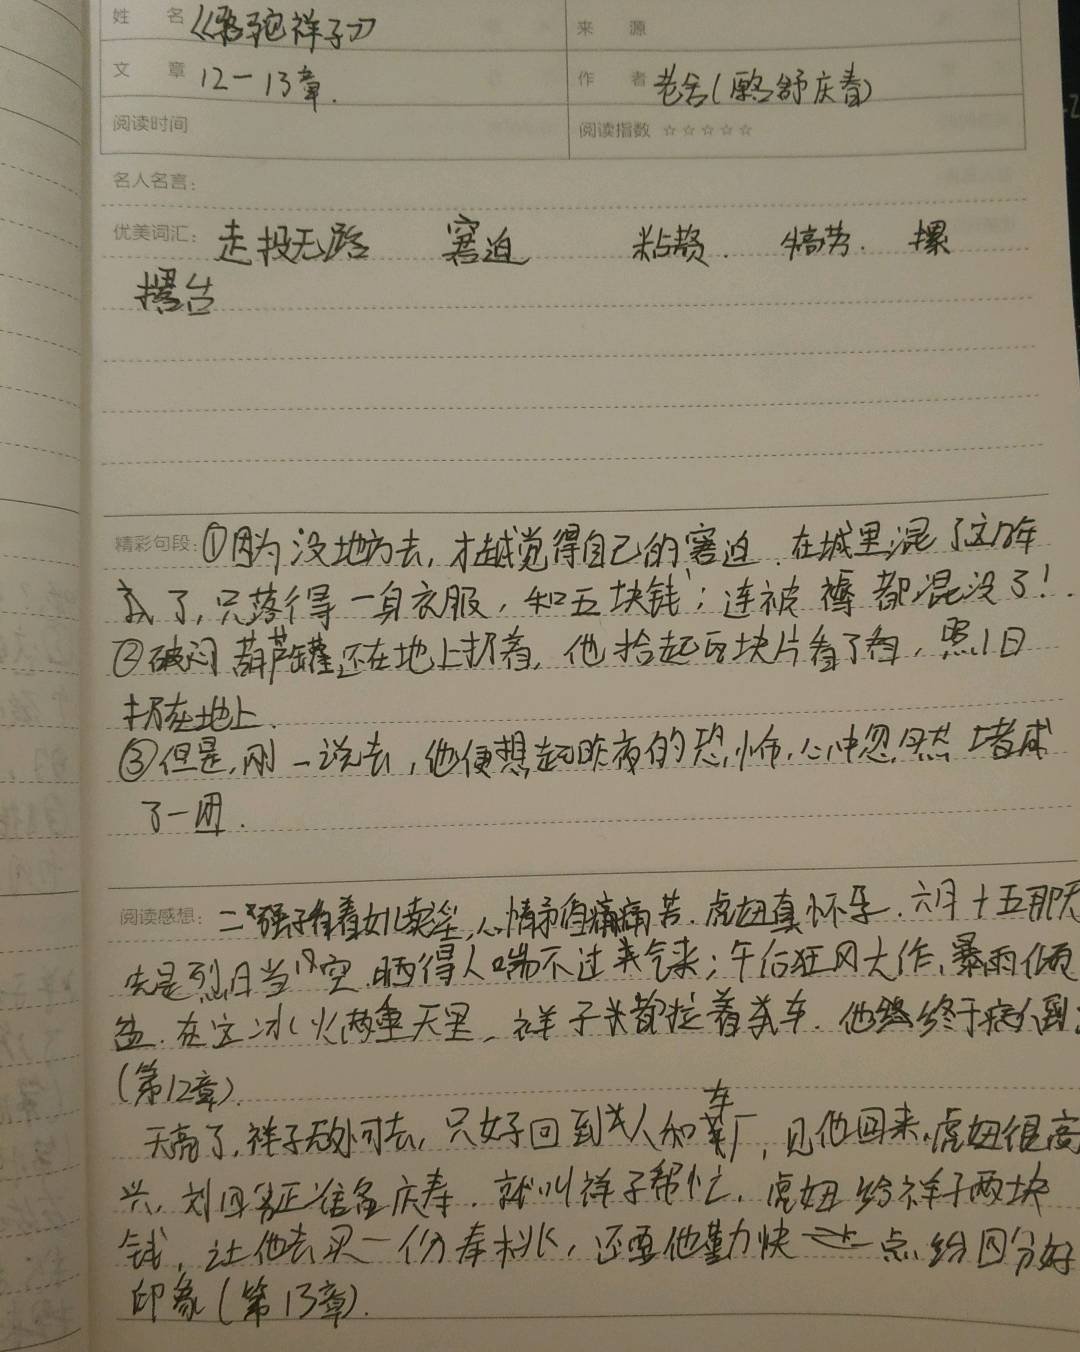 姓 名 《骆驼祥子》 来 源
文 章 12-13章. 作 者 老舍(原名舒庆春)
阅读时间 阅读指数 ☆☆☆☆☆
名人名言:
优美词汇: 走投无路 窘迫 粘赘. 犒劳. 摞
擂台
精彩句段: ①因为没地方去,才越觉得自己的窘迫.在城里混了这几年
了,只落得一身衣服,和五块钱;连被褥都混没了!.
②破闷葫芦罐还在地上扔着,他拾起瓦块片看了看,照旧
扔在地上.
③但是,刚一说去,他便想起昨夜的恐怖,心中忽然堵成
了一团.
阅读感想: 二强子看着女儿卖淫,心情矛盾痛苦.虎妞真怀孕.六月十五那天
先是烈日当空,晒得人喘不过来气来;午后狂风大作,暴雨倾
盆.在这冰火两重天里,祥子米都拉着买车.他终于病倒
(第12章).
天亮了,祥子无处可去,只好回到人和车厂,见他回来,虎妞很高
兴,刘四爷正准备庆寿.就叫祥子帮忙,虎妞给祥子两块
钱,让他去买一份寿桃,还要他勤快一点,给四爷好
印象(第13章).